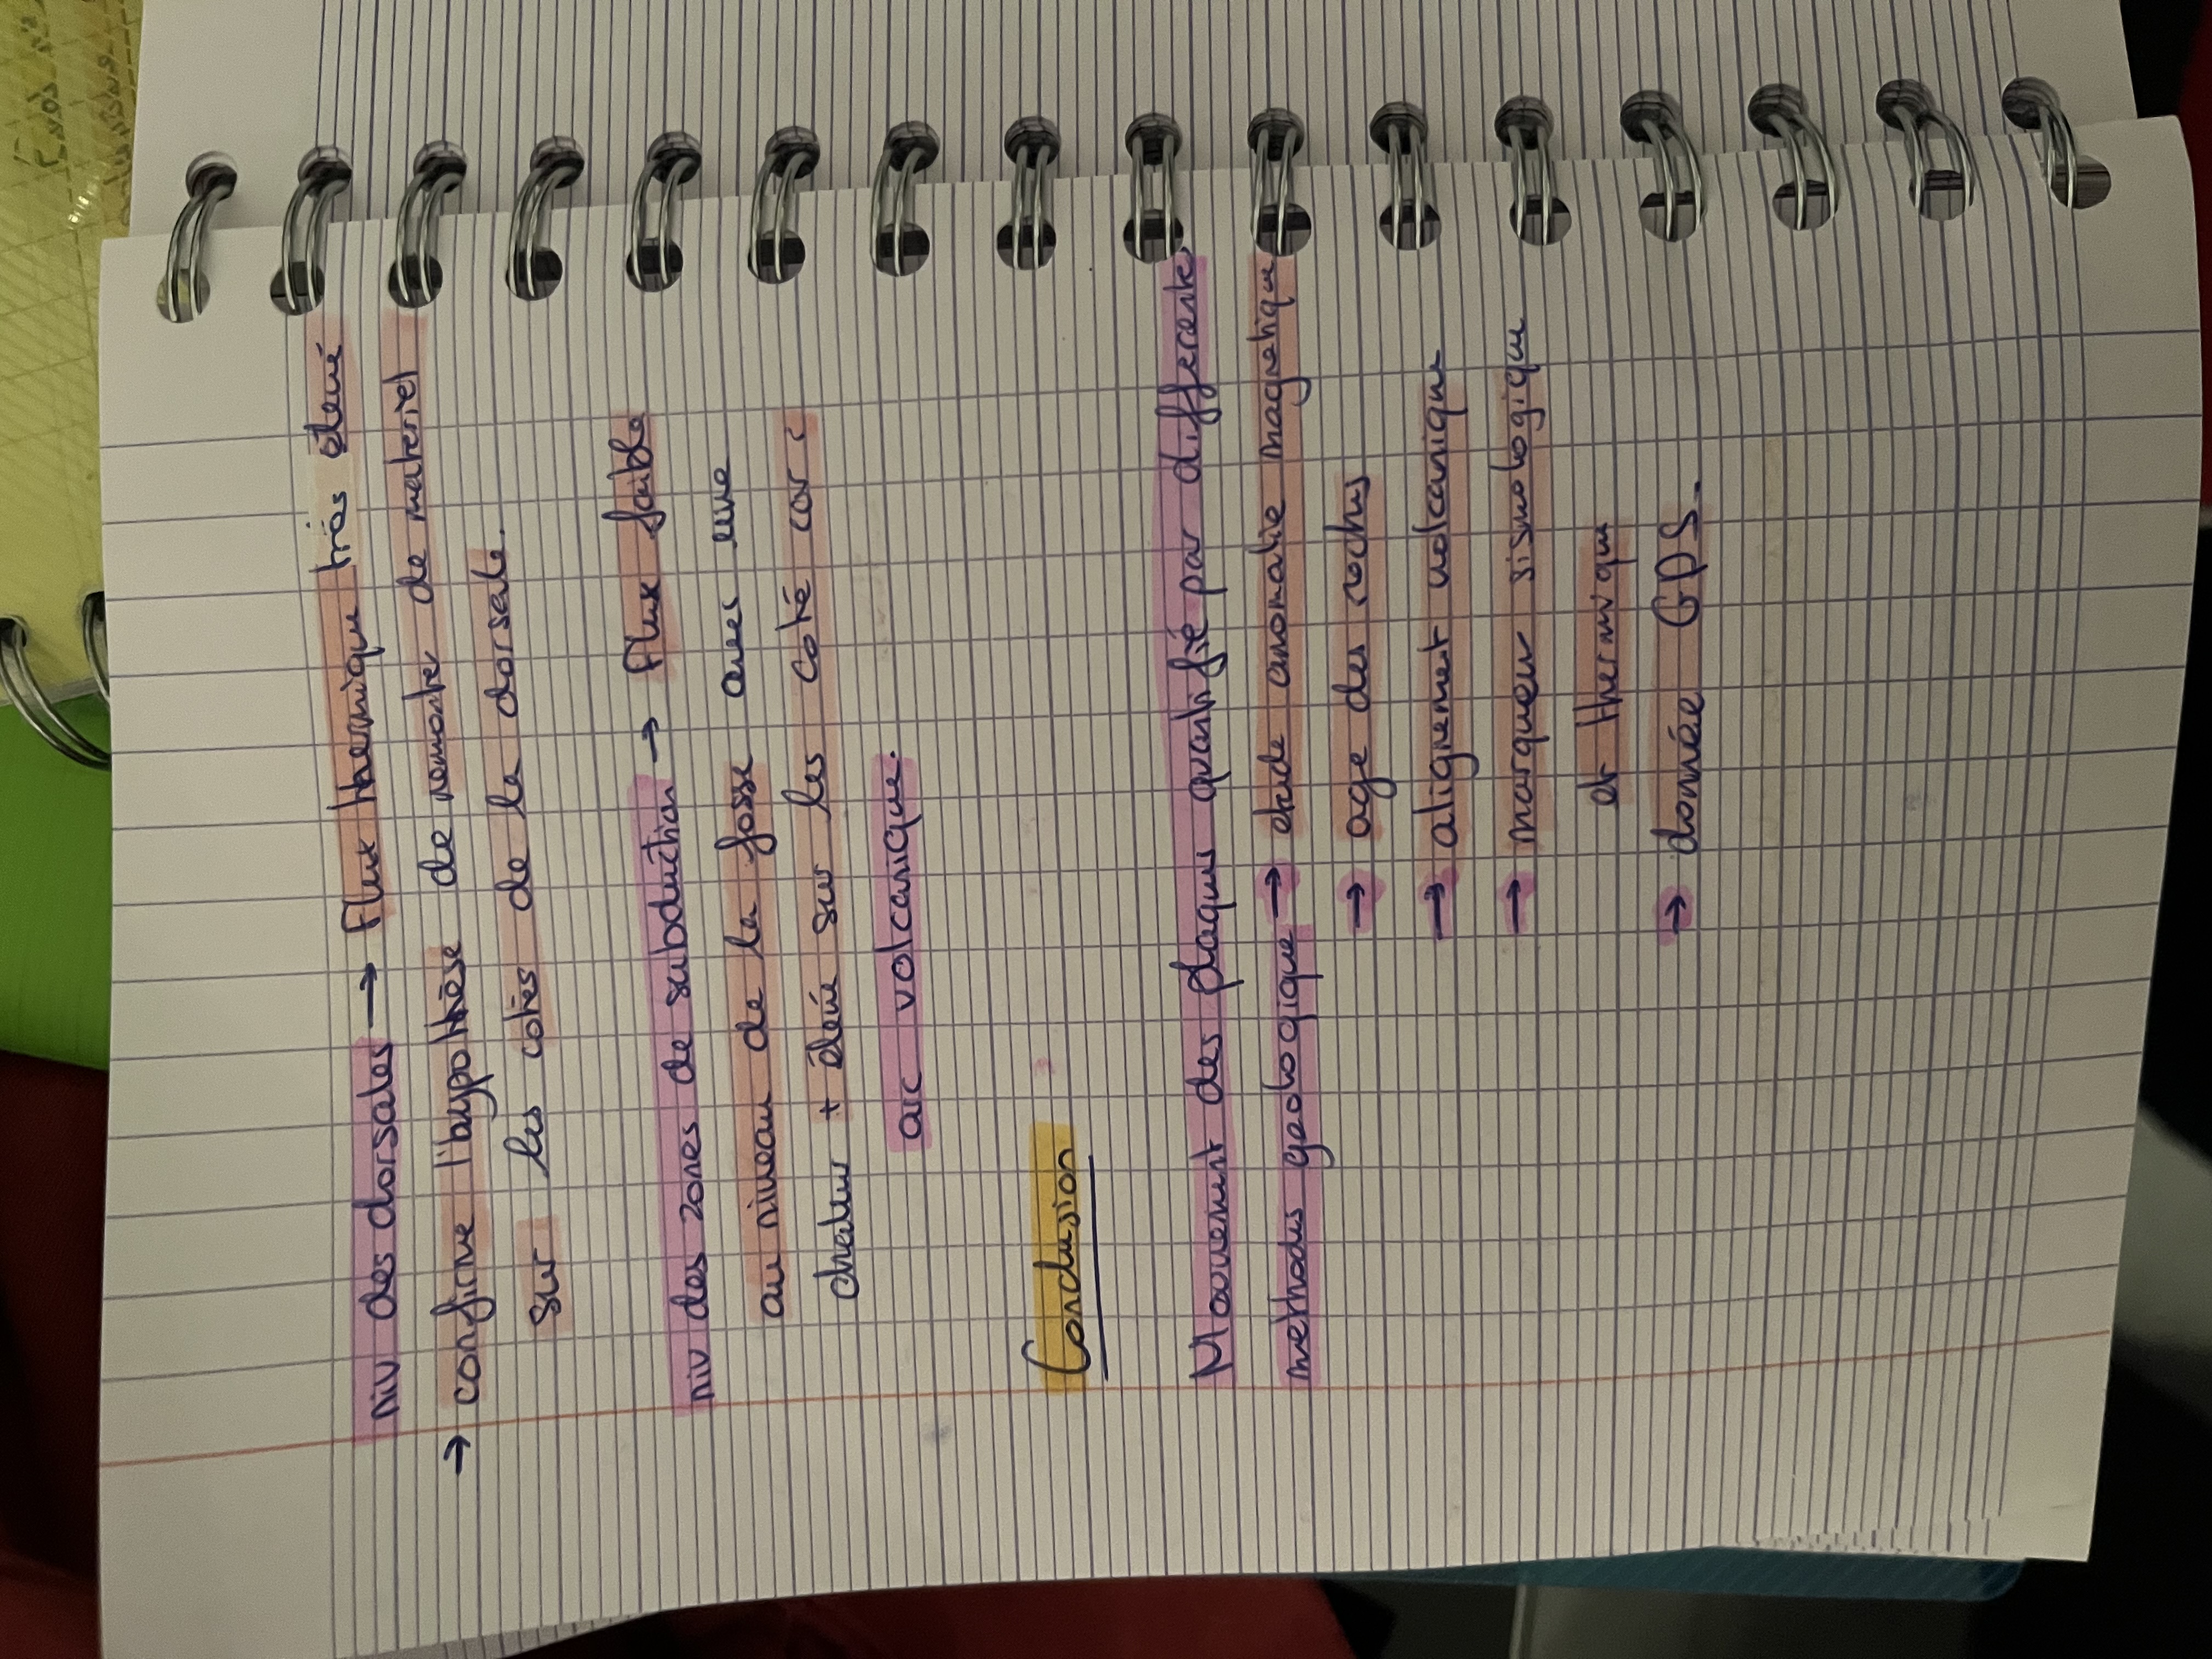 niv des dorsales → Flux thermique très élevé
→ confirme l'hypothèse de remonter de materiel
sur les cotés de la dorsale.
niv des zones de subduction → Flux faible
au niveau de la fosse avec une
chaleur + élevé sur les coté car :
arc volcanique.
Conclusion
Mouvement des plaques quantifié par differente
méthodes geologique → etude anomalie magnetique
→ age des roches
→ alignement volcanique
→ marqueur sismologique
et thermique
→ donnée GPS.